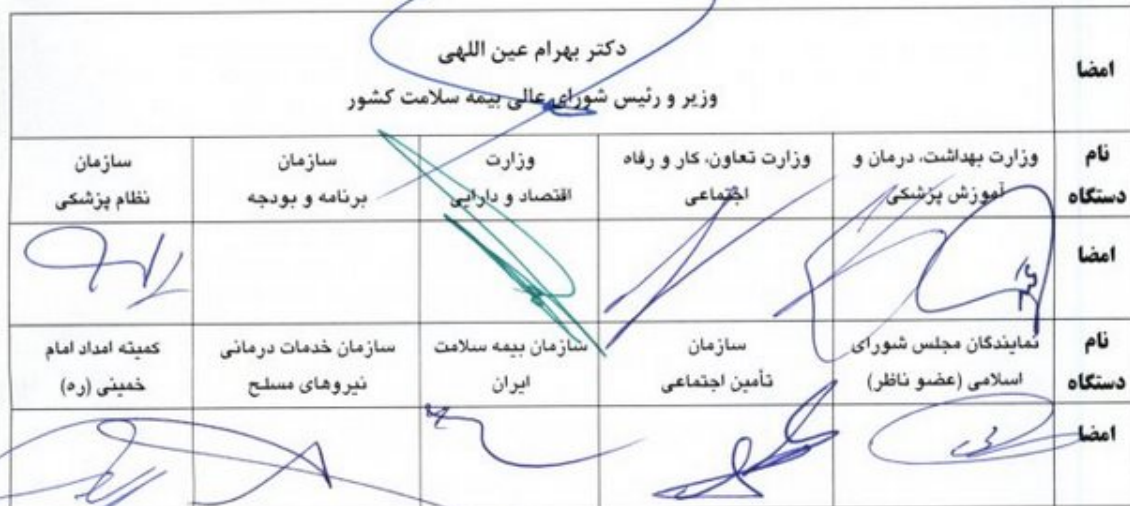 امضا
دکتر بهرام عین اللهی
وزیر و رئیس شورای عالی بیمه سلامت کشور
نام دستگاه
وزارت بهداشت، درمان و آموزش پزشکی
وزارت تعاون، کار و رفاه اجتماعی
وزارت اقتصاد و دارایی
سازمان برنامه و بودجه
سازمان نظام پزشکی
امضا
نام دستگاه
نمایندگان مجلس شورای اسلامی (عضو ناظر)
سازمان تأمین اجتماعی
سازمان بیمه سلامت ایران
سازمان خدمات درمانی نیروهای مسلح
کمیته امداد امام خمینی (ره)
امضا